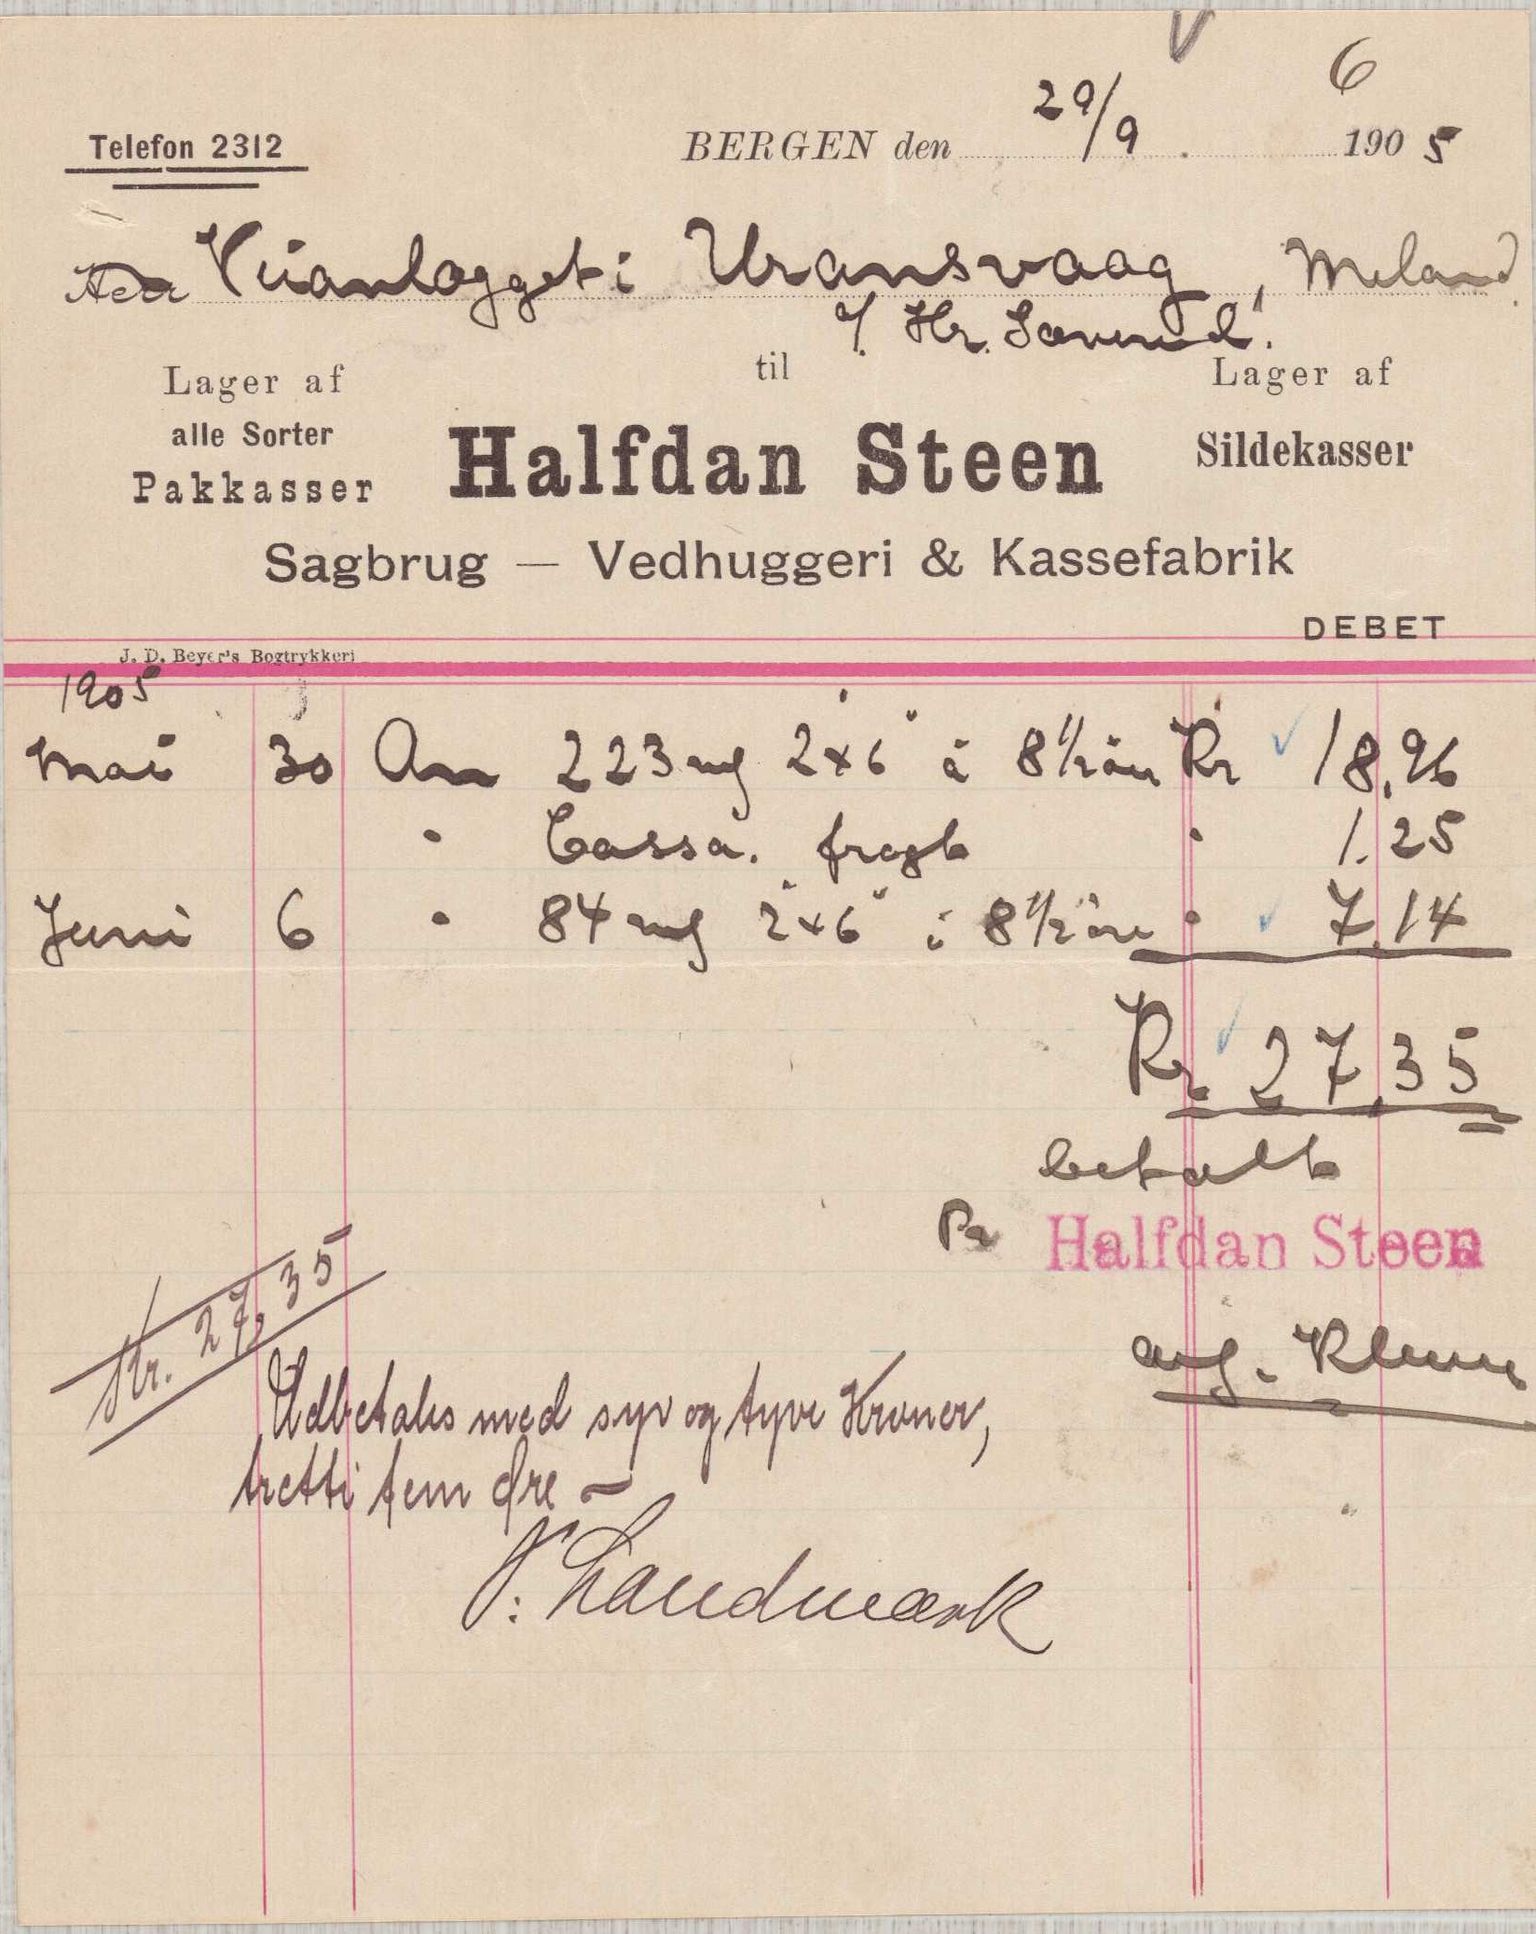 6
29/9
Telefon 2312
BERGEN den 1905
Herr Veianlægget i Uransvaag, Meland
v/ Hr. Sørensd.
til
Lager af
alle Sorter
Pakkasser
Halfdan Steen
Lager af
Sildekasser
Sagbrug — Vedhuggeri & Kassefabrik
DEBET
J. D. Beyer's Bogtrykkeri
1905
Mai 30 An 223 2×6" á 8 1/2 øre Kr 18,96
" Cassa. fragt " 1.25
Juni 6 " 84 2"×6" á 8 1/2 øre " 7.14
Kr. 27,35
betalt
Pr Halfdan Steen
aug.
Kr. 27,35
Udbetales med syv og tyve Kroner,
tretti fem Øre –
N: Landmark